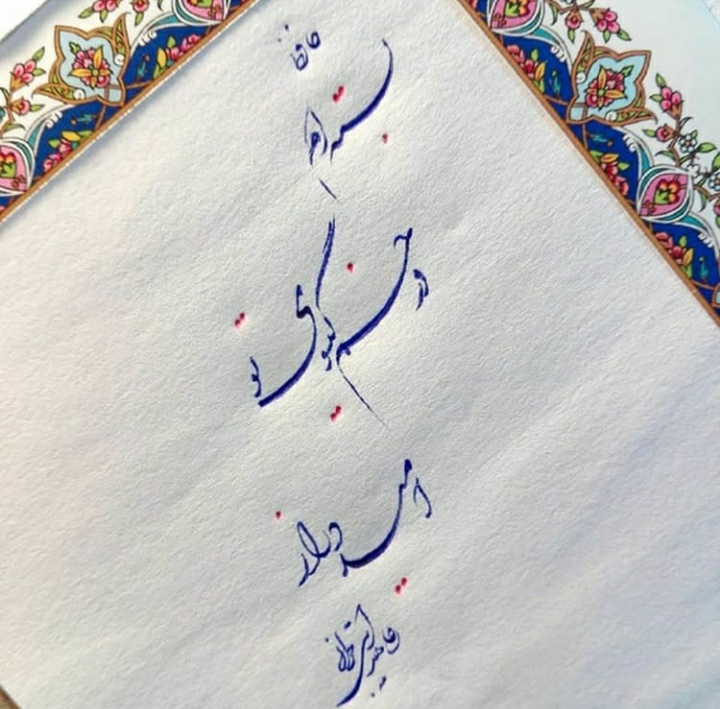 حافظ
بسته ام
در خم گیسوی تو
امید دراز